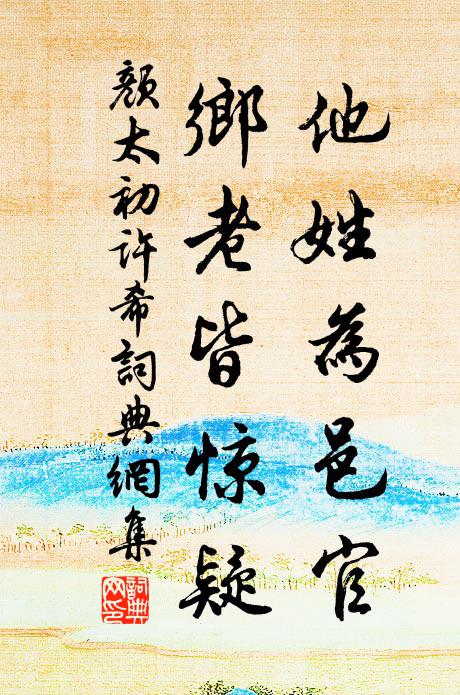 他姓為邑官
鄉老皆惊疑
顏太初許希詞典網集
詞典
网印